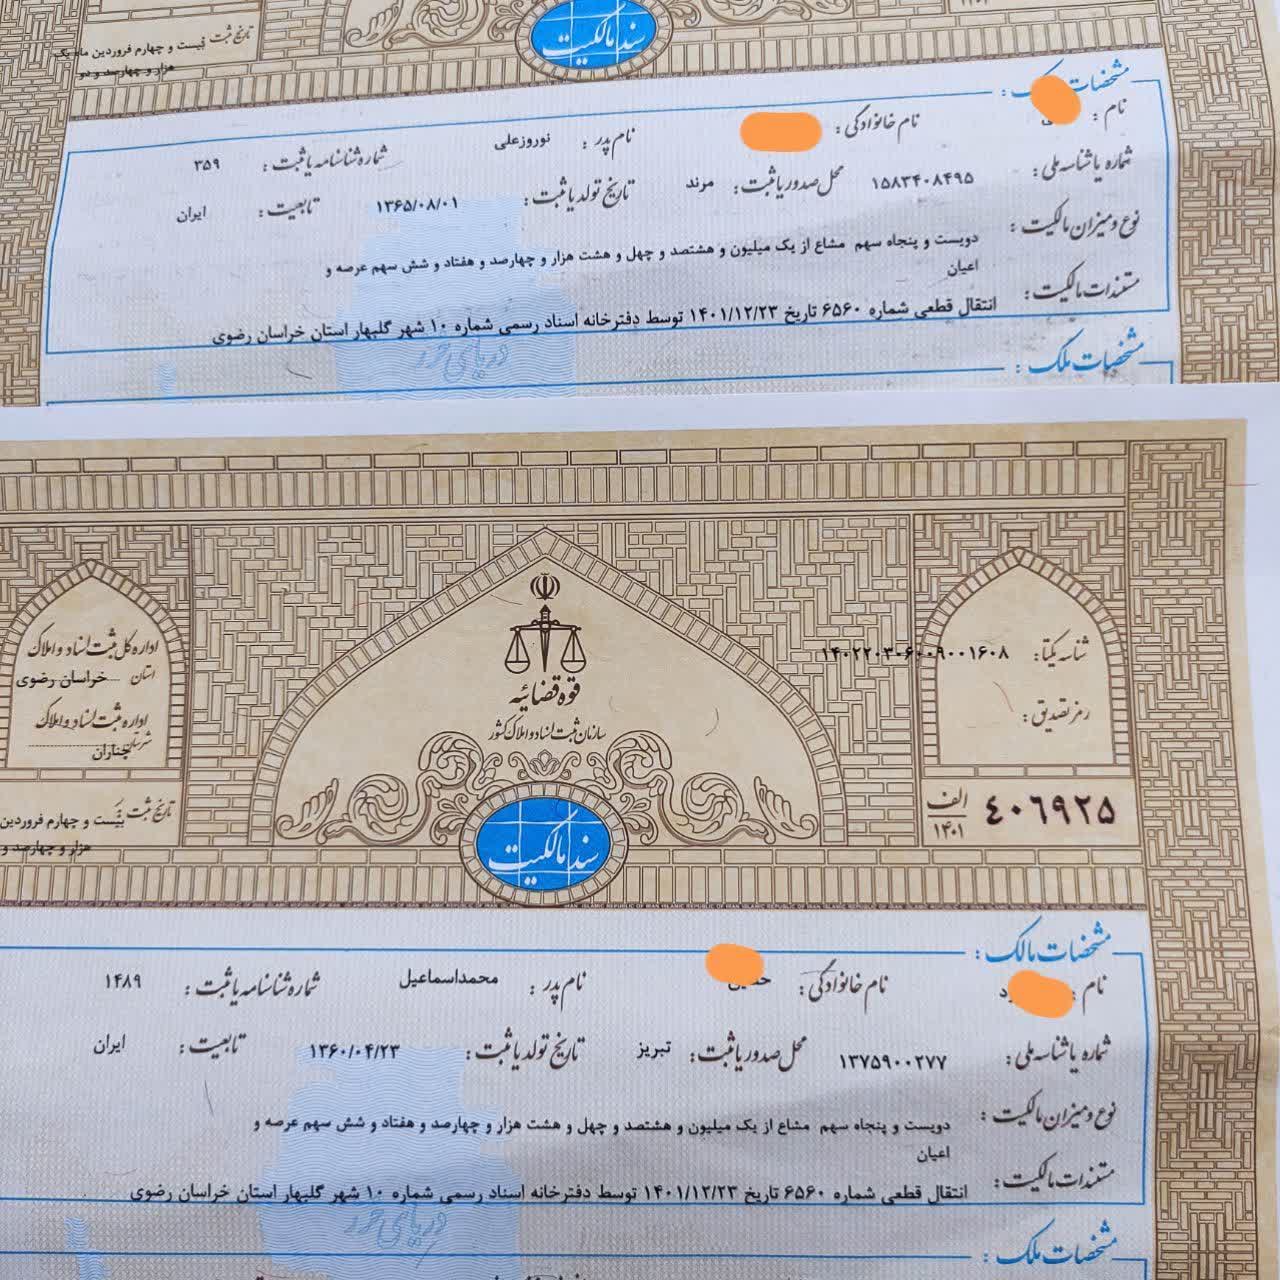 سند مالکیت
تاریخ ثبت بیست و چهارم فروردین ماه یک
هزار و چهارصد و دو
مشخصات
نام :
نام خانوادگی :
نام پدر : نوروزعلی
شماره شناسنامه یا ثبت : ۳۵۹
شماره یا شناسه ملی : ۱۵۸۳۴۰۸۴۹۵
محل صدور یا ثبت : مرند
تاریخ تولد یا ثبت : ۱۳۶۵/۰۸/۰۱
تابعیت : ایران
نوع و میزان مالکیت : دویست و پنجاه سهم مشاع از یک میلیون و هشتصد و چهل و هشت هزار و چهارصد و هفتاد و شش سهم عرصه و
اعیان
مستندات مالکیت : انتقال قطعی شماره ۶۵۶۰ تاریخ ۱۴۰۱/۱۲/۲۳ توسط دفترخانه اسناد رسمی شماره ۱۰ شهر گلبهار استان خراسان رضوی
دریای خزر
مشخصات ملک :
اداره کل ثبت اسناد و املاک
استان خراسان رضوی
اداره ثبت اسناد و املاک
شهرستان چناران
تاریخ ثبت بیست و چهارم فروردین
هزار و چهارصد و
قوه قضائیه
سازمان ثبت اسناد و املاک کشور
سند مالکیت
شناسه یکتا : ۱۴۰۲۲۰۳۰۶۰۰۹۰۰۱۶۰۸
رمز تصدیق :
الف ۴۰۶۹۲۵
۱۴۰۱
مشخصات مالک :
نام :
نام خانوادگی :
نام پدر : محمداسماعیل
شماره شناسنامه یا ثبت : ۱۴۸۹
شماره یا شناسه ملی : ۱۳۷۵۹۰۰۲۷۷
محل صدور یا ثبت : تبریز
تاریخ تولد یا ثبت : ۱۳۶۰/۰۴/۲۳
تابعیت : ایران
نوع و میزان مالکیت : دویست و پنجاه سهم مشاع از یک میلیون و هشتصد و چهل و هشت هزار و چهارصد و هفتاد و شش سهم عرصه و
اعیان
مستندات مالکیت : انتقال قطعی شماره ۶۵۶۰ تاریخ ۱۴۰۱/۱۲/۲۳ توسط دفترخانه اسناد رسمی شماره ۱۰ شهر گلبهار استان خراسان رضوی
دریای خزر
مشخصات ملک :